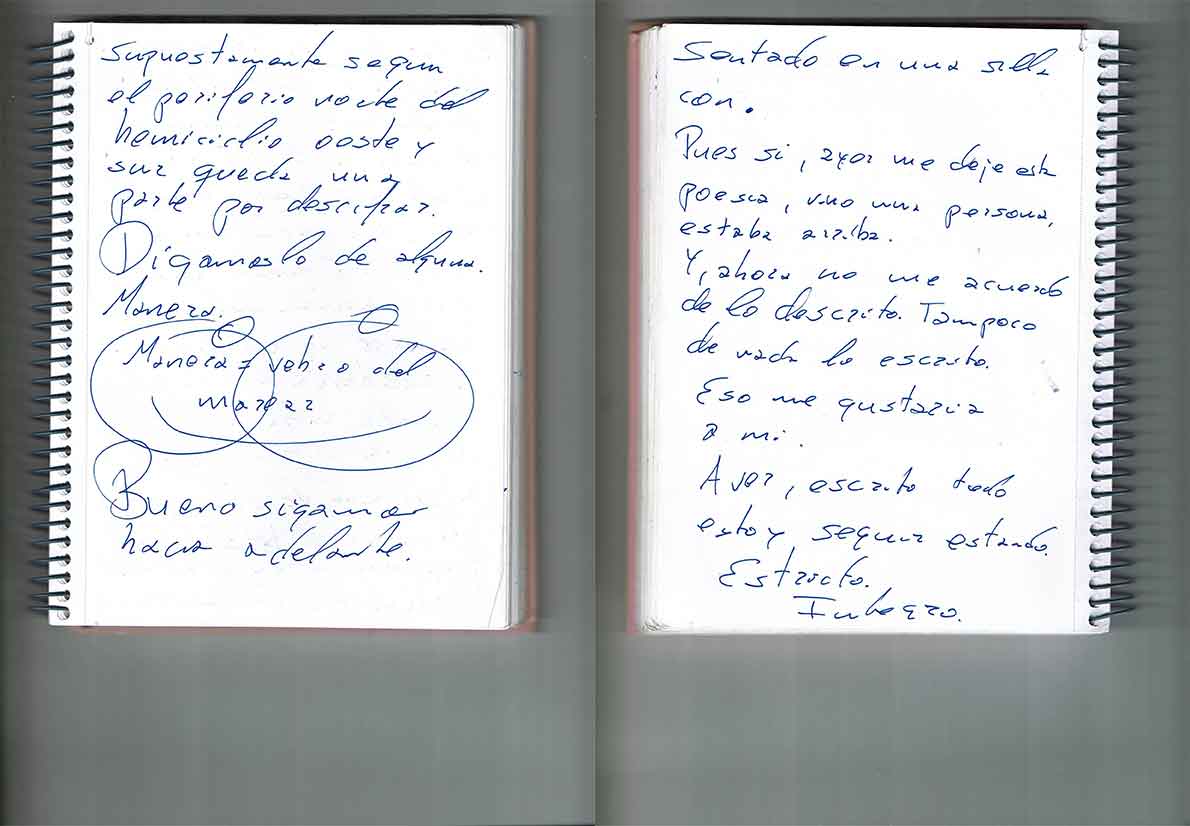 Supuestamente segun
el periferio norte del
hemiciclio oeste y
sur queda una
parte por descifrar.
Digamoslo de alguna.
Manera.
Manera = vebro del
marear
Bueno sigamos
hacia adelante.
Sentado en una silla
con.
Pues si, ayer me deje esta
poesia, vino una persona,
estaba arriba.
Y, ahora no me acuerdo
de lo descrito. Tampoco
de nada lo escrito.
Eso me gustaria
a mi.
A ver, escrito todo
esto y seguir estando.
Estricto.
Integro.